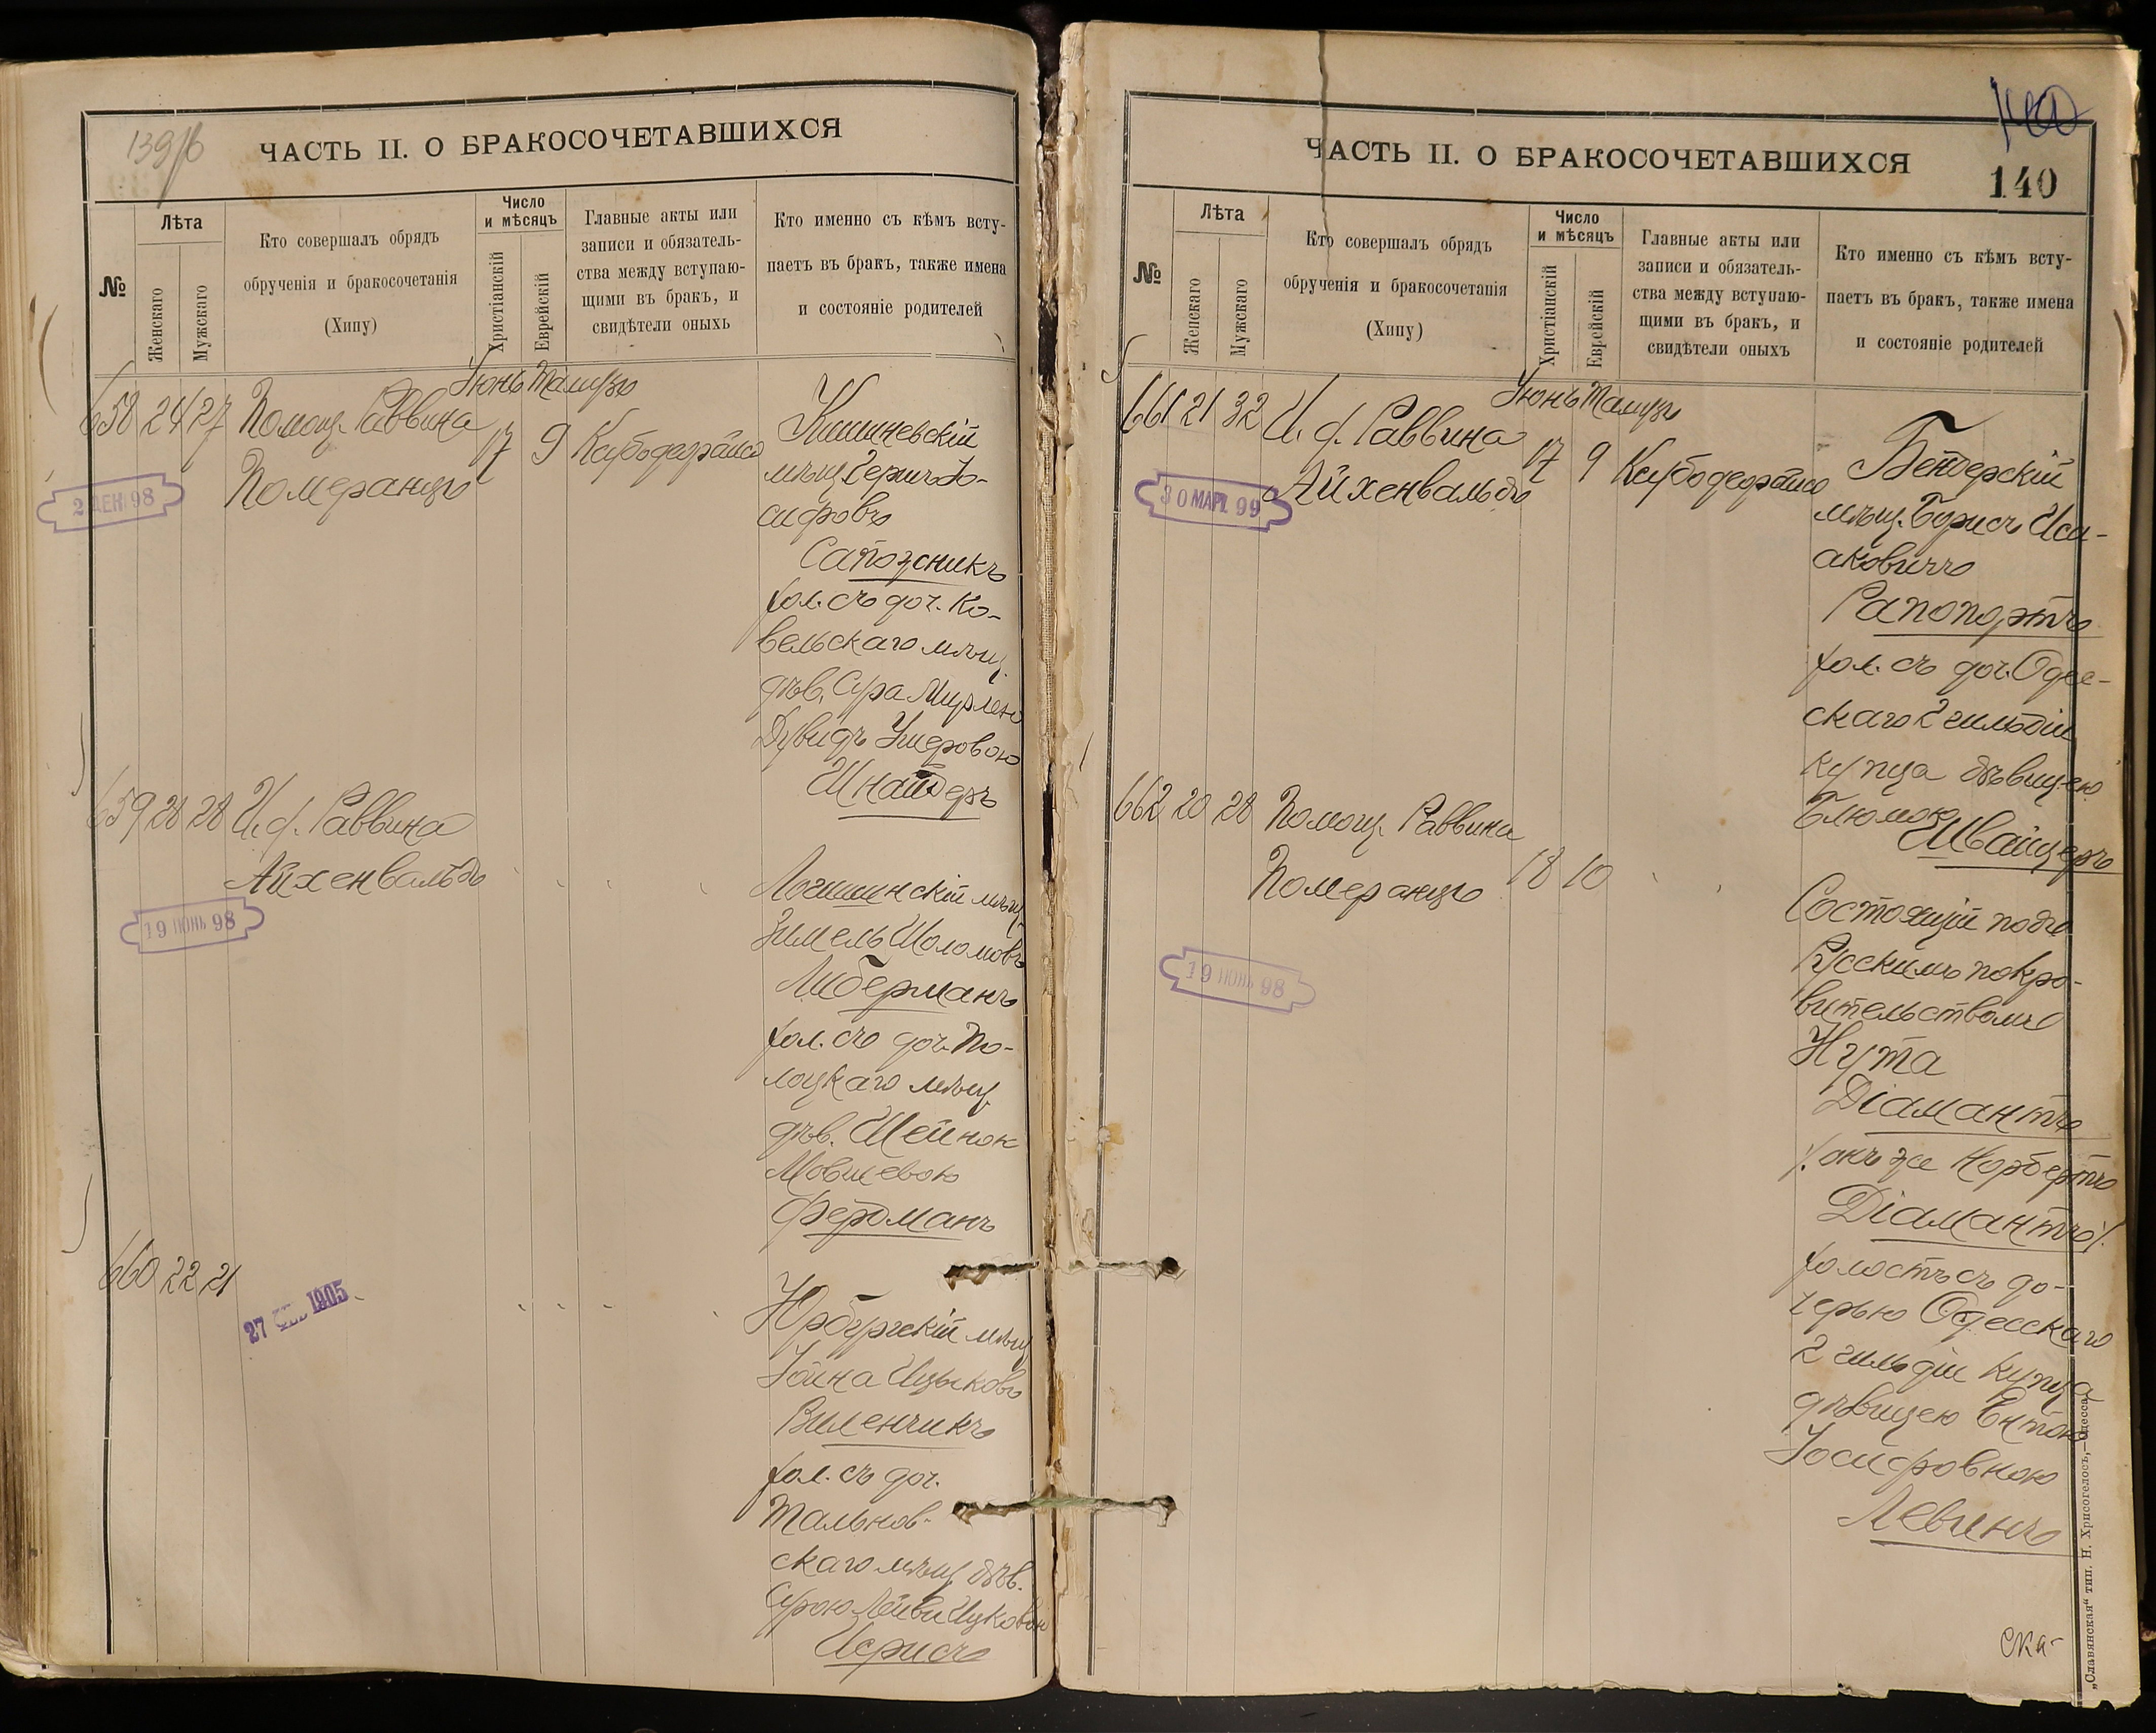 139/б
ЧАСТЬ II. О БРАКОСОЧЕТАВШИХСЯ
№
Лѣта
Женскаго
Мужскаго
Кто совершалъ обрядъ
обрученія и бракосочетанія
(Хипу)
Число
и мѣсяцъ
Христіанскій
Еврейскій
Главные акты или
записи и обязатель-
ства между вступаю-
щими въ бракъ, и
свидѣтели оныхъ
Кто именно съ кѣмъ всту-
паетъ въ бракъ, также имена
и состояніе родителей
Іюнь Тамузъ
658 24 27 Помощ. Раввина
Померанцъ
17 9
2 ДЕК 98
Кишиневскій
мѣщ. Гершъ Іо-
сифовъ
Сапожникъ
хол. съ доч. Ко-
вельскаго мѣщ.
дѣв. Сура
Дувидъ Ушеровою
Шнайдеръ
659 28 28 И. д. Раввина
Айхенвальдъ
19 ИЮНЬ 98
Логишинскій мѣщ.
Зимель Шоломовъ
Либерманъ
хол. съ доч. По-
лоцкаго мѣщ.
дѣв. Шейною
Мовшевою
Фердманъ
660 22 21
27 1905
Юрбургскій мѣщ.
Іоина Ицыковъ
Виленчикъ
хол. съ доч.
Тальнов-
скаго мѣщ. дѣв.
Сурою Ицковою
140
ЧАСТЬ II. О БРАКОСОЧЕТАВШИХСЯ
140
№
Лѣта
Женскаго
Мужскаго
Кто совершалъ обрядъ
обрученія и бракосочетанія
(Хипу)
Число
и мѣсяцъ
Христіанскій
Еврейскій
Главные акты или
записи и обязатель-
ства между вступаю-
щими въ бракъ, и
свидѣтели оныхъ
Кто именно съ кѣмъ всту-
паетъ въ бракъ, также имена
и состояніе родителей
Іюнь Тамузъ
661 21 32 И. д. Раввина
Айхенвальдъ
17 9
30 МАР. 99
Бендерскій
мѣщ. Борисъ Иса-
аковичъ
Рапопортъ
хол. съ доч. Одес-
скаго 2 гильдіи
купца дѣвицею
Блюмою
Швайцеръ
662 20 28 Помощ. Раввина
Померанцъ
18 10
19 ИЮНЬ 98
Состоящій подъ
Русскимъ покро-
вительствомъ
Нута
Діамантъ
/. онъ же Норбертъ
Діамантъ/.
холостъ съ до-
черью Одесскаго
2 гильдіи купца
дѣвицею Ентою
Іосифовною
Левинъ
Ска-
„Славянская“ тип. Н. Хрисогелосъ,—Одесса.